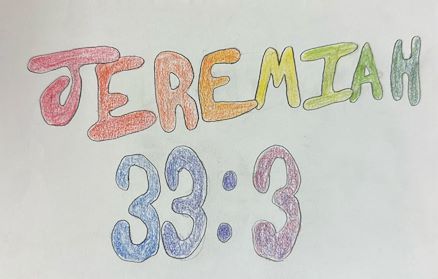 JEREMIAH
33:3